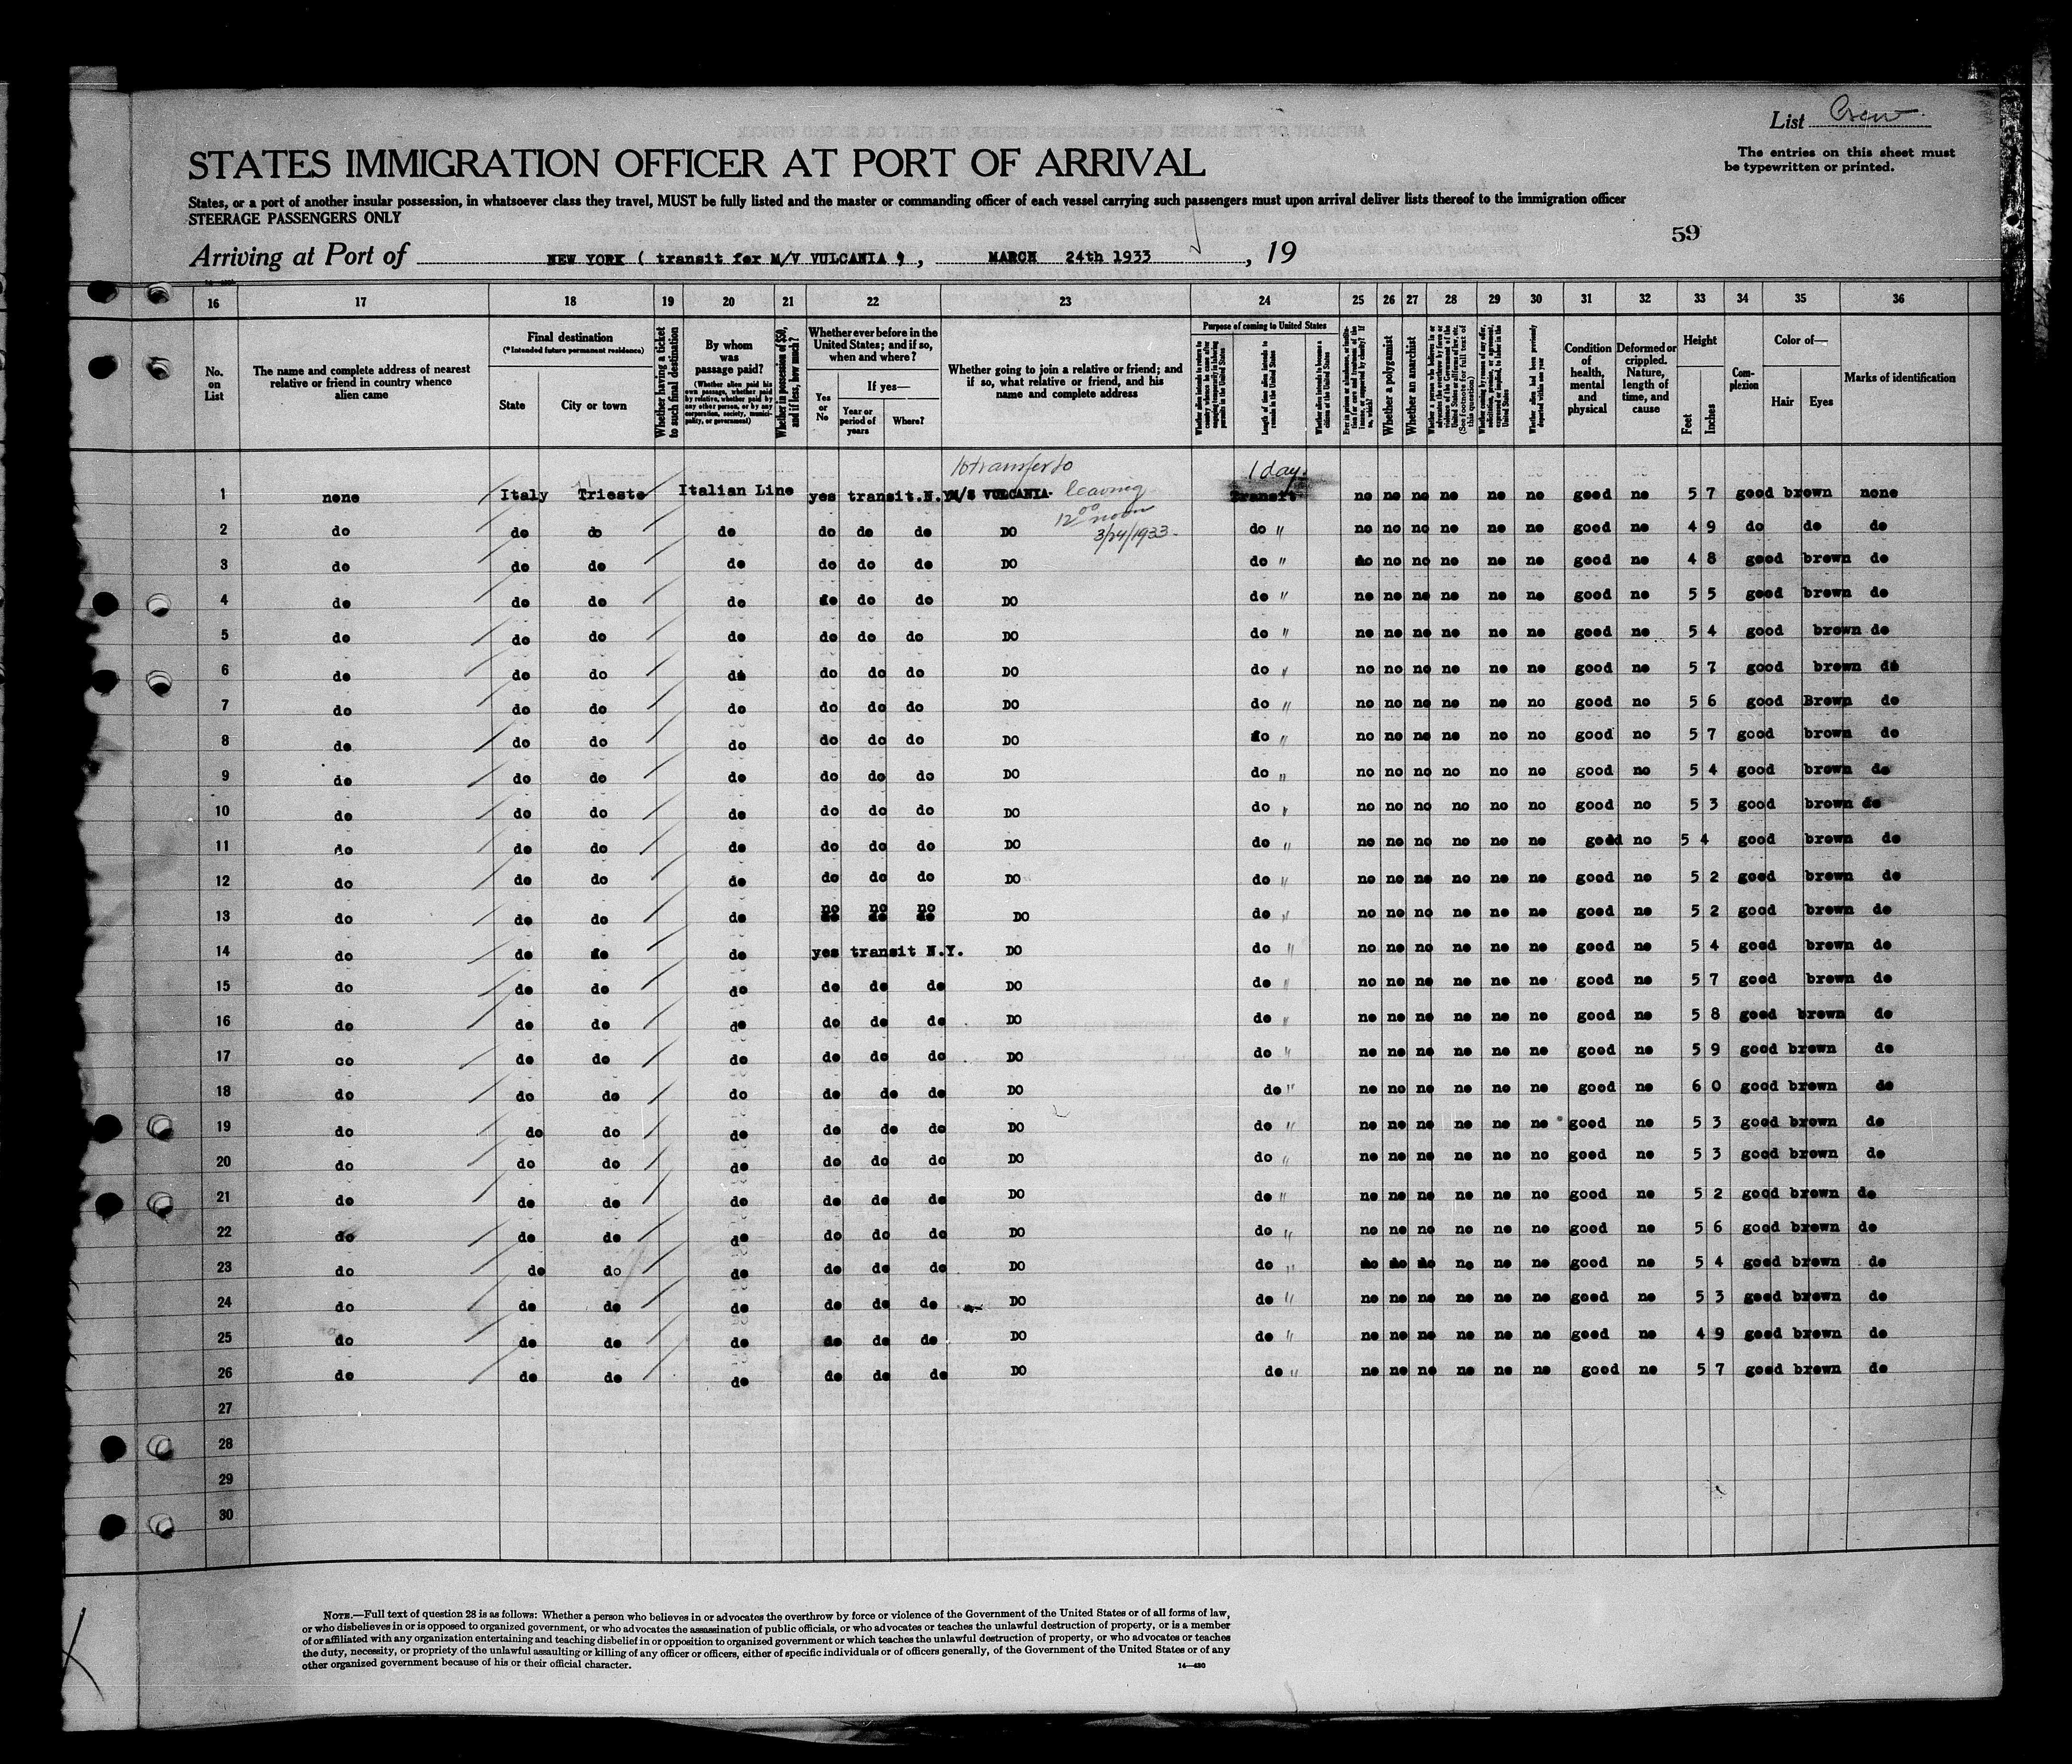 List Crew
The entries on this sheet must
be typewritten or printed.
STATES IMMIGRATION OFFICER AT PORT OF ARRIVAL
States, or a port of another insular possession, in whatsoever class they travel, MUST be fully listed and the master or commanding officer of each vessel carrying such passengers must upon arrival deliver lists thereof to the immigration officer
STEERAGE PASSENGERS ONLY
59
Arriving at Port of NEW YORK ( transit for M/V VULCANIA ) , MARCH 24th 1933 , 19
16 17 18 19 20 21 22 23 24 25 26 27 28 29 30 31 32 33 34 35 36
No. on List
The name and complete address of nearest relative or friend in country whence alien came
Final destination
(*Intended future permanent residence)
State
City or town
Whether having a ticket to such final destination
By whom was passage paid?
(Whether alien paid his own passage, whether paid by relative, whether paid by any other person, or by any corporation, society, municipality, or government)
Whether in possession of $50, and if less, how much?
Whether ever before in the United States; and if so, when and where?
Yes or No
If yes—
Year or period of years
Where?
Whether going to join a relative or friend; and if so, what relative or friend, and his name and complete address
Purpose of coming to United States
Length of time alien intends to remain in the United States
Whether alien intends to become a citizen of the United States
Whether a polygamist
Whether an anarchist
Whether alien had been previously deported within one year
Condition of health, mental and physical
Deformed or crippled. Nature, length of time, and cause
Height
Feet
Inches
Complexion
Color of—
Hair
Eyes
Marks of identification
to transfer to
1 day.
1 none Italy Trieste Italian Line yes transit.N.Y M/S VULCANIA leaving Transit no no no no no no good no 5 7 good brown none
12 00 noon
3/24/1933.
2 do do do do do do do DO do " no no no no no no good no 4 9 do do do
3 do do do do do do do DO do " no no no no no no good no 4 8 good brown do
4 do do do do do do do DO do " no no no no no no good no 5 5 good brown do
5 do do do do do do do DO do " no no no no no no good no 5 4 good brown do
6 do do do do do do do DO do " no no no no no no good no 5 7 good brown do
7 do do do do do do do DO do " no no no no no no good no 5 6 good Brown do
8 do do do do do do do DO do " no no no no no no good no 5 7 good brown do
9 do do do do do do do DO do " no no no no no no good no 5 4 good brown do
10 do do do do do do do DO do " no no no no no no good no 5 3 good brown do
11 do do do do do do do DO do " no no no no no no good no 5 4 good brown do
12 do do do do do do do DO do " no no no no no no good no 5 2 good brown do
13 do do do do no no no DO do " no no no no no no good no 5 2 good brown do
14 do do do do yes transit N.Y. DO do " no no no no no no good no 5 4 good brown do
15 do do do do do do do DO do " no no no no no no good no 5 7 good brown do
16 do do do do do do do DO do " no no no no no no good no 5 8 good brown do
17 do do do do do do do DO do " no no no no no no good no 5 9 good brown do
18 do do do do do do do DO do " no no no no no no good no 6 0 good brown do
19 do do do do do do do DO do " no no no no no no good no 5 3 good brown do
20 do do do do do do do DO do " no no no no no no good no 5 3 good brown do
21 do do do do do do do DO do " no no no no no no good no 5 2 good brown do
22 do do do do do do do DO do " no no no no no no good no 5 6 good brown do
23 do do do do do do do DO do " no no no no no no good no 5 4 good brown do
24 do do do do do do do DO do " no no no no no no good no 5 3 good brown do
25 do do do do do do do DO do " no no no no no no good no 4 9 good brown do
26 do do do do do do do DO do " no no no no no no good no 5 7 good brown do
27
28
29
30
NOTE.—Full text of question 28 is as follows: Whether a person who believes in or advocates the overthrow by force or violence of the Government of the United States or of all forms of law,
or who disbelieves in or is opposed to organized government, or who advocates the assassination of public officials, or who advocates or teaches the unlawful destruction of property, or is a member
of or affiliated with any organization entertaining and teaching disbelief in or opposition to organized government or which teaches the unlawful destruction of property, or who advocates or teaches
the duty, necessity, or propriety of the unlawful assaulting or killing of any officer or officers, either of specific individuals or of officers generally, of the Government of the United States or of any
other organized government because of his or their official character.
14—430